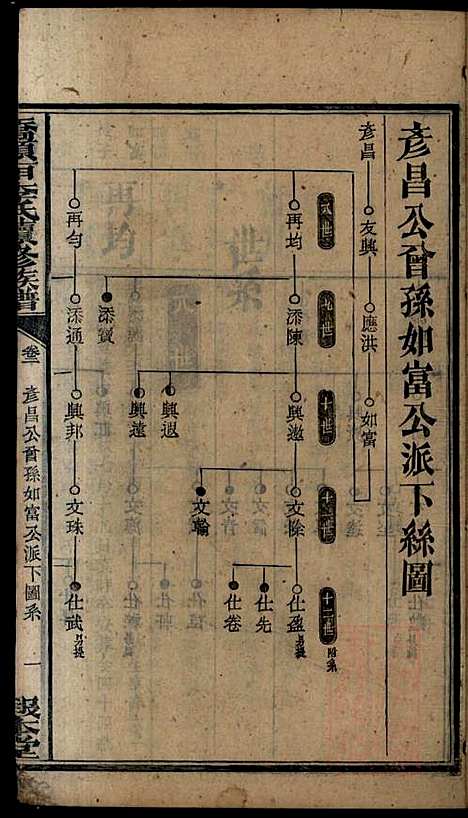 彥昌公曾孫如富公派下絲圖
彥昌
友興
應洪
如富
十世
十一世
十二世
附系
再均
添陳
興遨
文陰
仕盈
另提
仕先
仕卷
興退
文騟
興遠
添寶
再勻
添通
興邦
文珠
仕武
另提
李氏續修族譜
卷三
彥昌公曾孫如富公派下圖系
一
報本堂